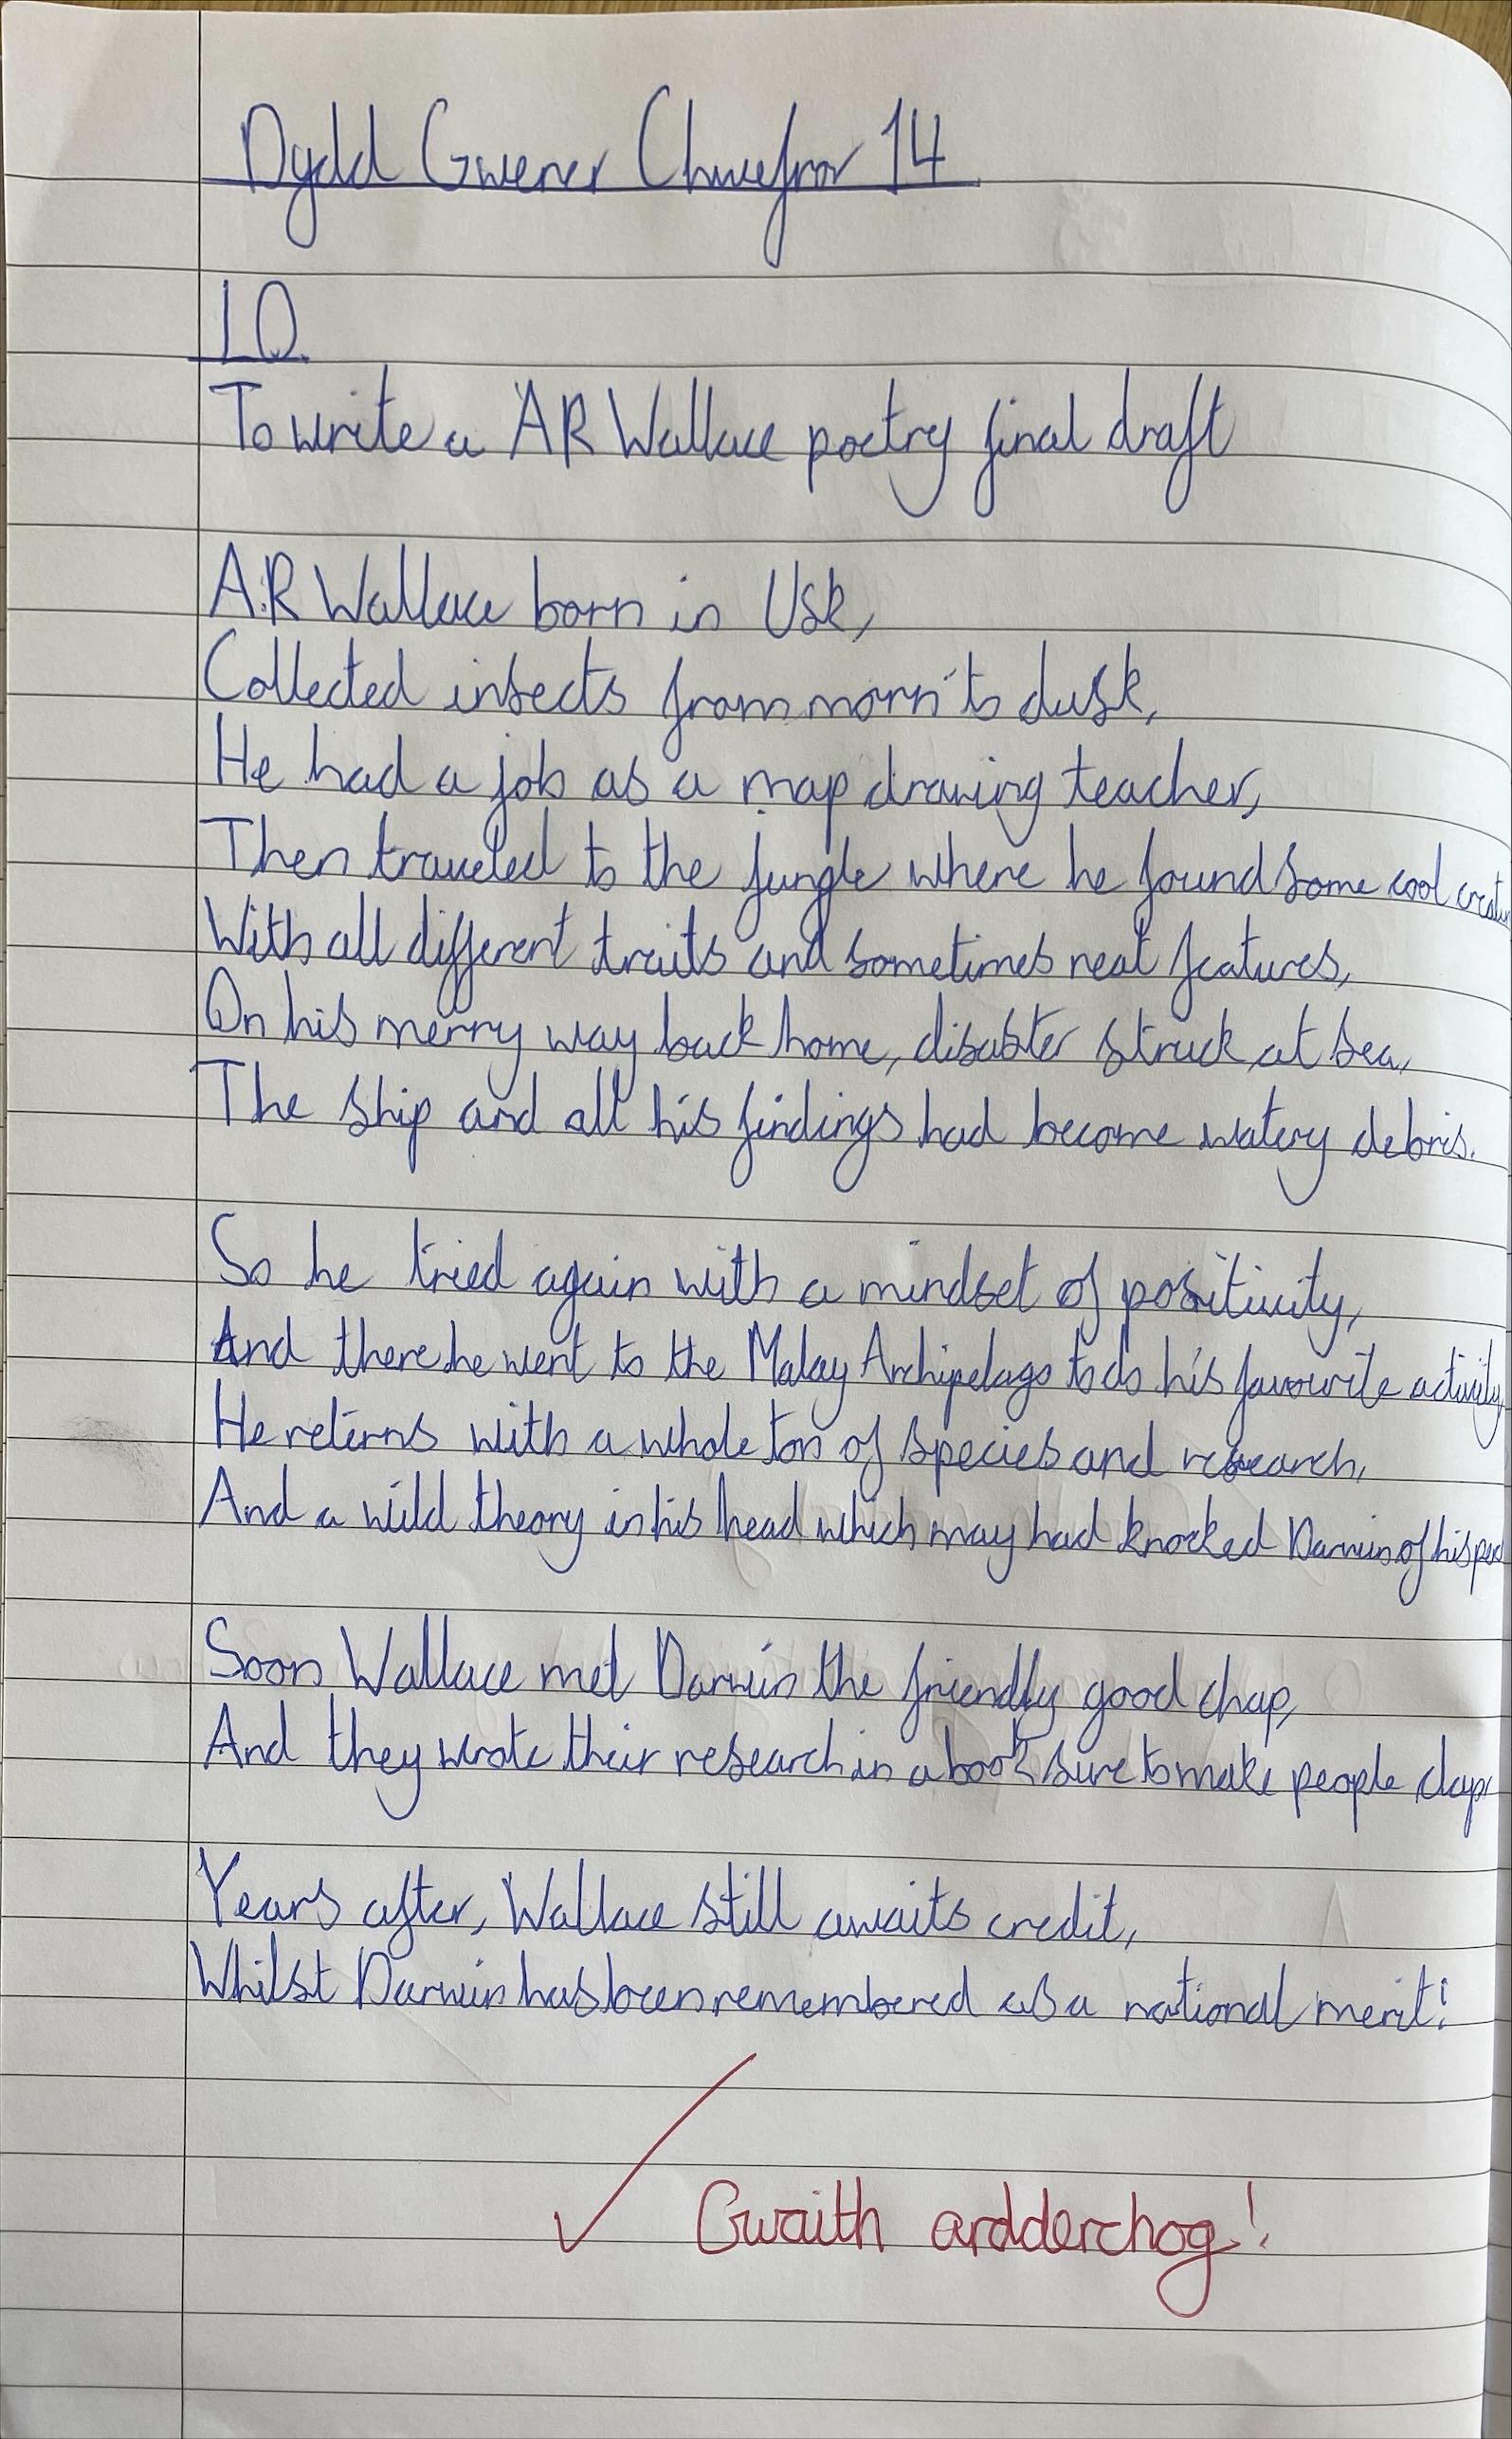 Dydd Gwener Chwefror 14
LO.
To write a AR Wallace poetry final draft
A.R Wallace born in Usk,
Collected insects from morn to dusk,
He had a job as a map drawing teacher,
Then traveled to the jungle where he found some cool
With all different traits and sometimes neat features,
On his merry way back home, disaster struck at sea,
The ship and all his findings had become watery debris.
So he tried again with a mindset of positivity,
And there he went to the Malay Archipelago to do his favourite activity
He returns with a whole ton of species and research,
And a wild theory in his head which may had knocked Darwin of his
Soon Wallace met Darwin the friendly good chap,
And they wrote their research in a book sure to make people clap
Years after, Wallace still awaits credit,
Whilst Darwin has been remembered as a national merit!
Gwaith ardderchog!